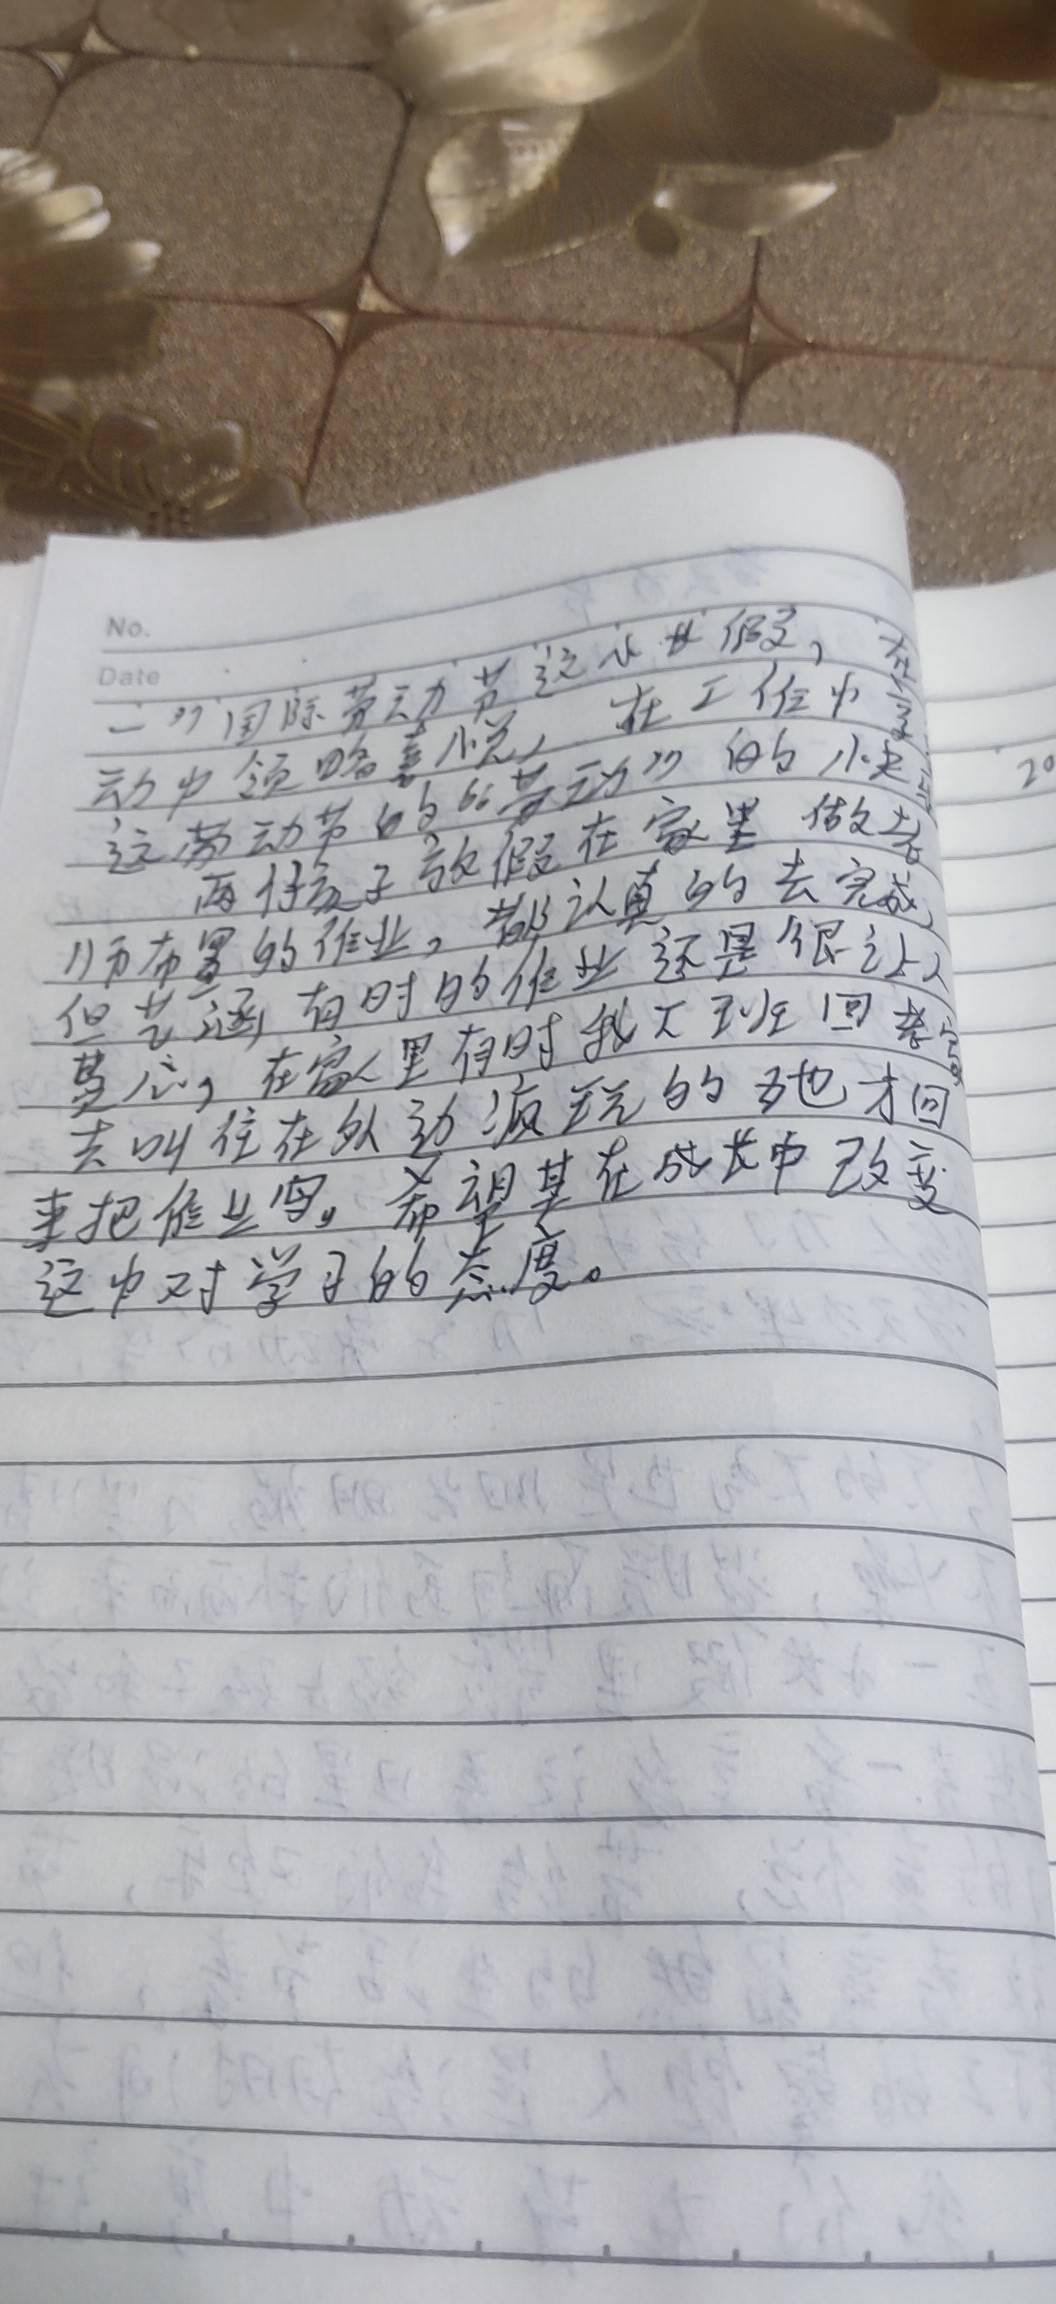 No.
Date
一”国际劳动节这小长假，在劳
动中领略喜悦，在工作中
这劳动节的“劳动”的小
两个孩子放假在家里做老
师布置的作业，都认真的去完成，
但艺涵有时的作业还是很让人
费心，在家里有时我下班回家
去叫住在外动滚玩的她才回
来把作业写。希望其在成长中改变
这中对学习的态度。
20